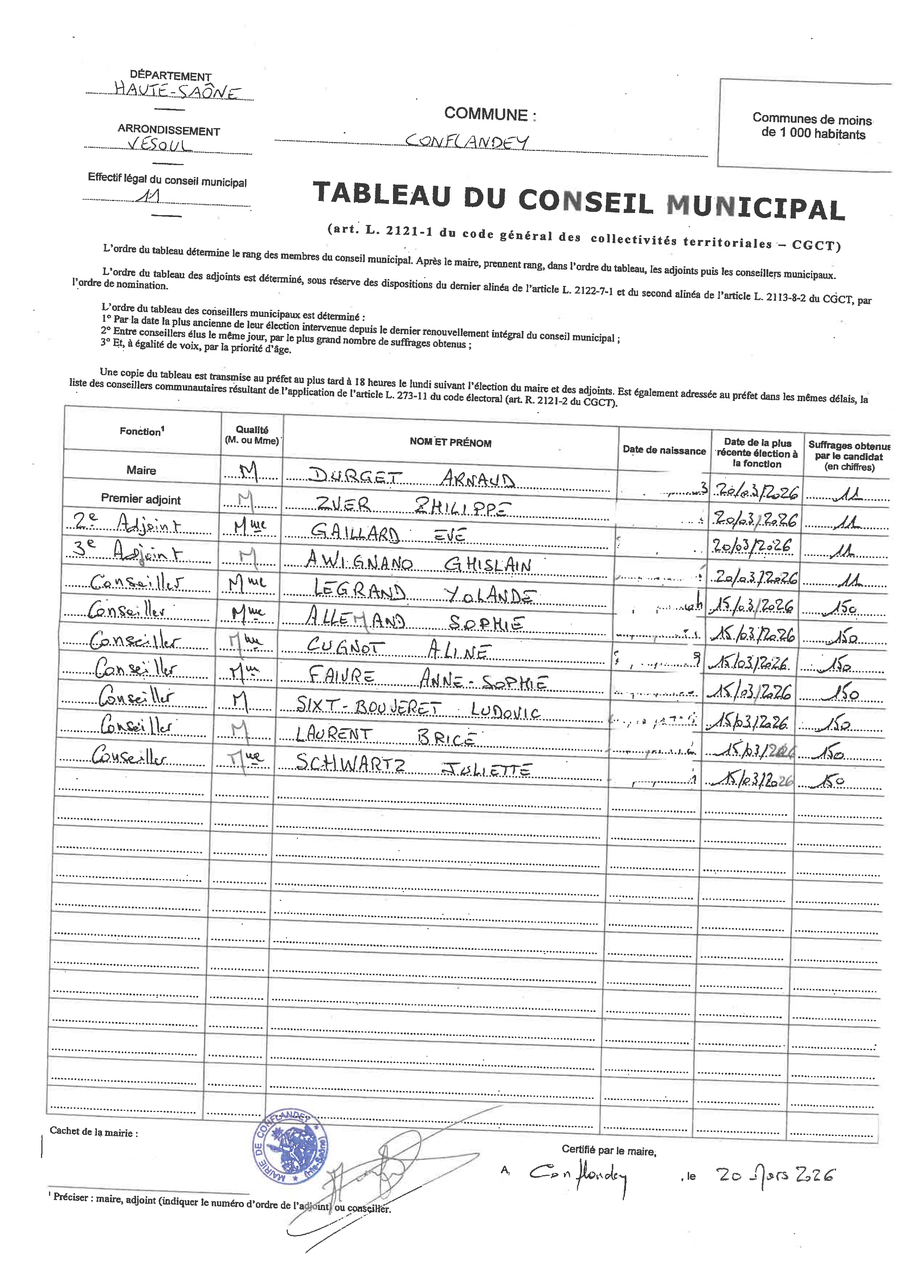 DÉPARTEMENT
HAUTE-SAÔNE
ARRONDISSEMENT
VESOUL
Effectif légal du conseil municipal
11
COMMUNE :
CONFLANDEY
Communes de moins
de 1 000 habitants
TABLEAU DU CONSEIL MUNICIPAL
(art. L. 2121-1 du code général des collectivités territoriales – CGCT)
L'ordre du tableau détermine le rang des membres du conseil municipal. Après le maire, prennent rang, dans l'ordre du tableau, les adjoints puis les conseillers municipaux.
L'ordre du tableau des adjoints est déterminé, sous réserve des dispositions du dernier alinéa de l'article L. 2122-7-1 et du second alinéa de l'article L. 2113-8-2 du CGCT, par
l'ordre de nomination.
L'ordre du tableau des conseillers municipaux est déterminé :
1° Par la date la plus ancienne de leur élection intervenue depuis le dernier renouvellement intégral du conseil municipal ;
2° Entre conseillers élus le même jour, par le plus grand nombre de suffrages obtenus ;
3° Et, à égalité de voix, par la priorité d'âge.
Une copie du tableau est transmise au préfet au plus tard à 18 heures le lundi suivant l'élection du maire et des adjoints. Est également adressée au préfet dans les mêmes délais, la
liste des conseillers communautaires résultant de l'application de l'article L. 273-11 du code électoral (art. R. 2121-2 du CGCT).
Fonction¹ Qualité (M. ou Mme) NOM ET PRÉNOM Date de naissance Date de la plus récente élection à la fonction Suffrages obtenus par le candidat (en chiffres)
Maire M DURGET ARNAUD 20/03/2026 11
Premier adjoint M ZUER ZHILIPPE 20/03/2026 11
2e Adjoint Mme GAILLARD EVE 20/03/2026 11
3e Adjoint M AWIGNANO GHISLAIN 20/03/2026 11
Conseiller Mme LEGRAND YOLANDE 15/03/2026 150
Conseiller Mme ALLEMAND SOPHIE 15/03/2026 150
Conseiller Mme CUGNOT ALINE 15/03/2026 150
Conseiller Mme FAIVRE ANNE-SOPHIE 15/03/2026 150
Conseiller M SIXT-BOUVERET LUDOVIC 15/03/2026 150
Conseiller M LAURENT BRICE 15/03/2026 150
Conseiller Mme SCHWARTZ JULIETTE 15/03/2026 150
Cachet de la mairie :
MAIRIE DE CONFLANDEY
Certifié par le maire,
A, Conflandey , le 20 Mars 2026
¹ Préciser : maire, adjoint (indiquer le numéro d'ordre de l'adjoint) ou conseiller.